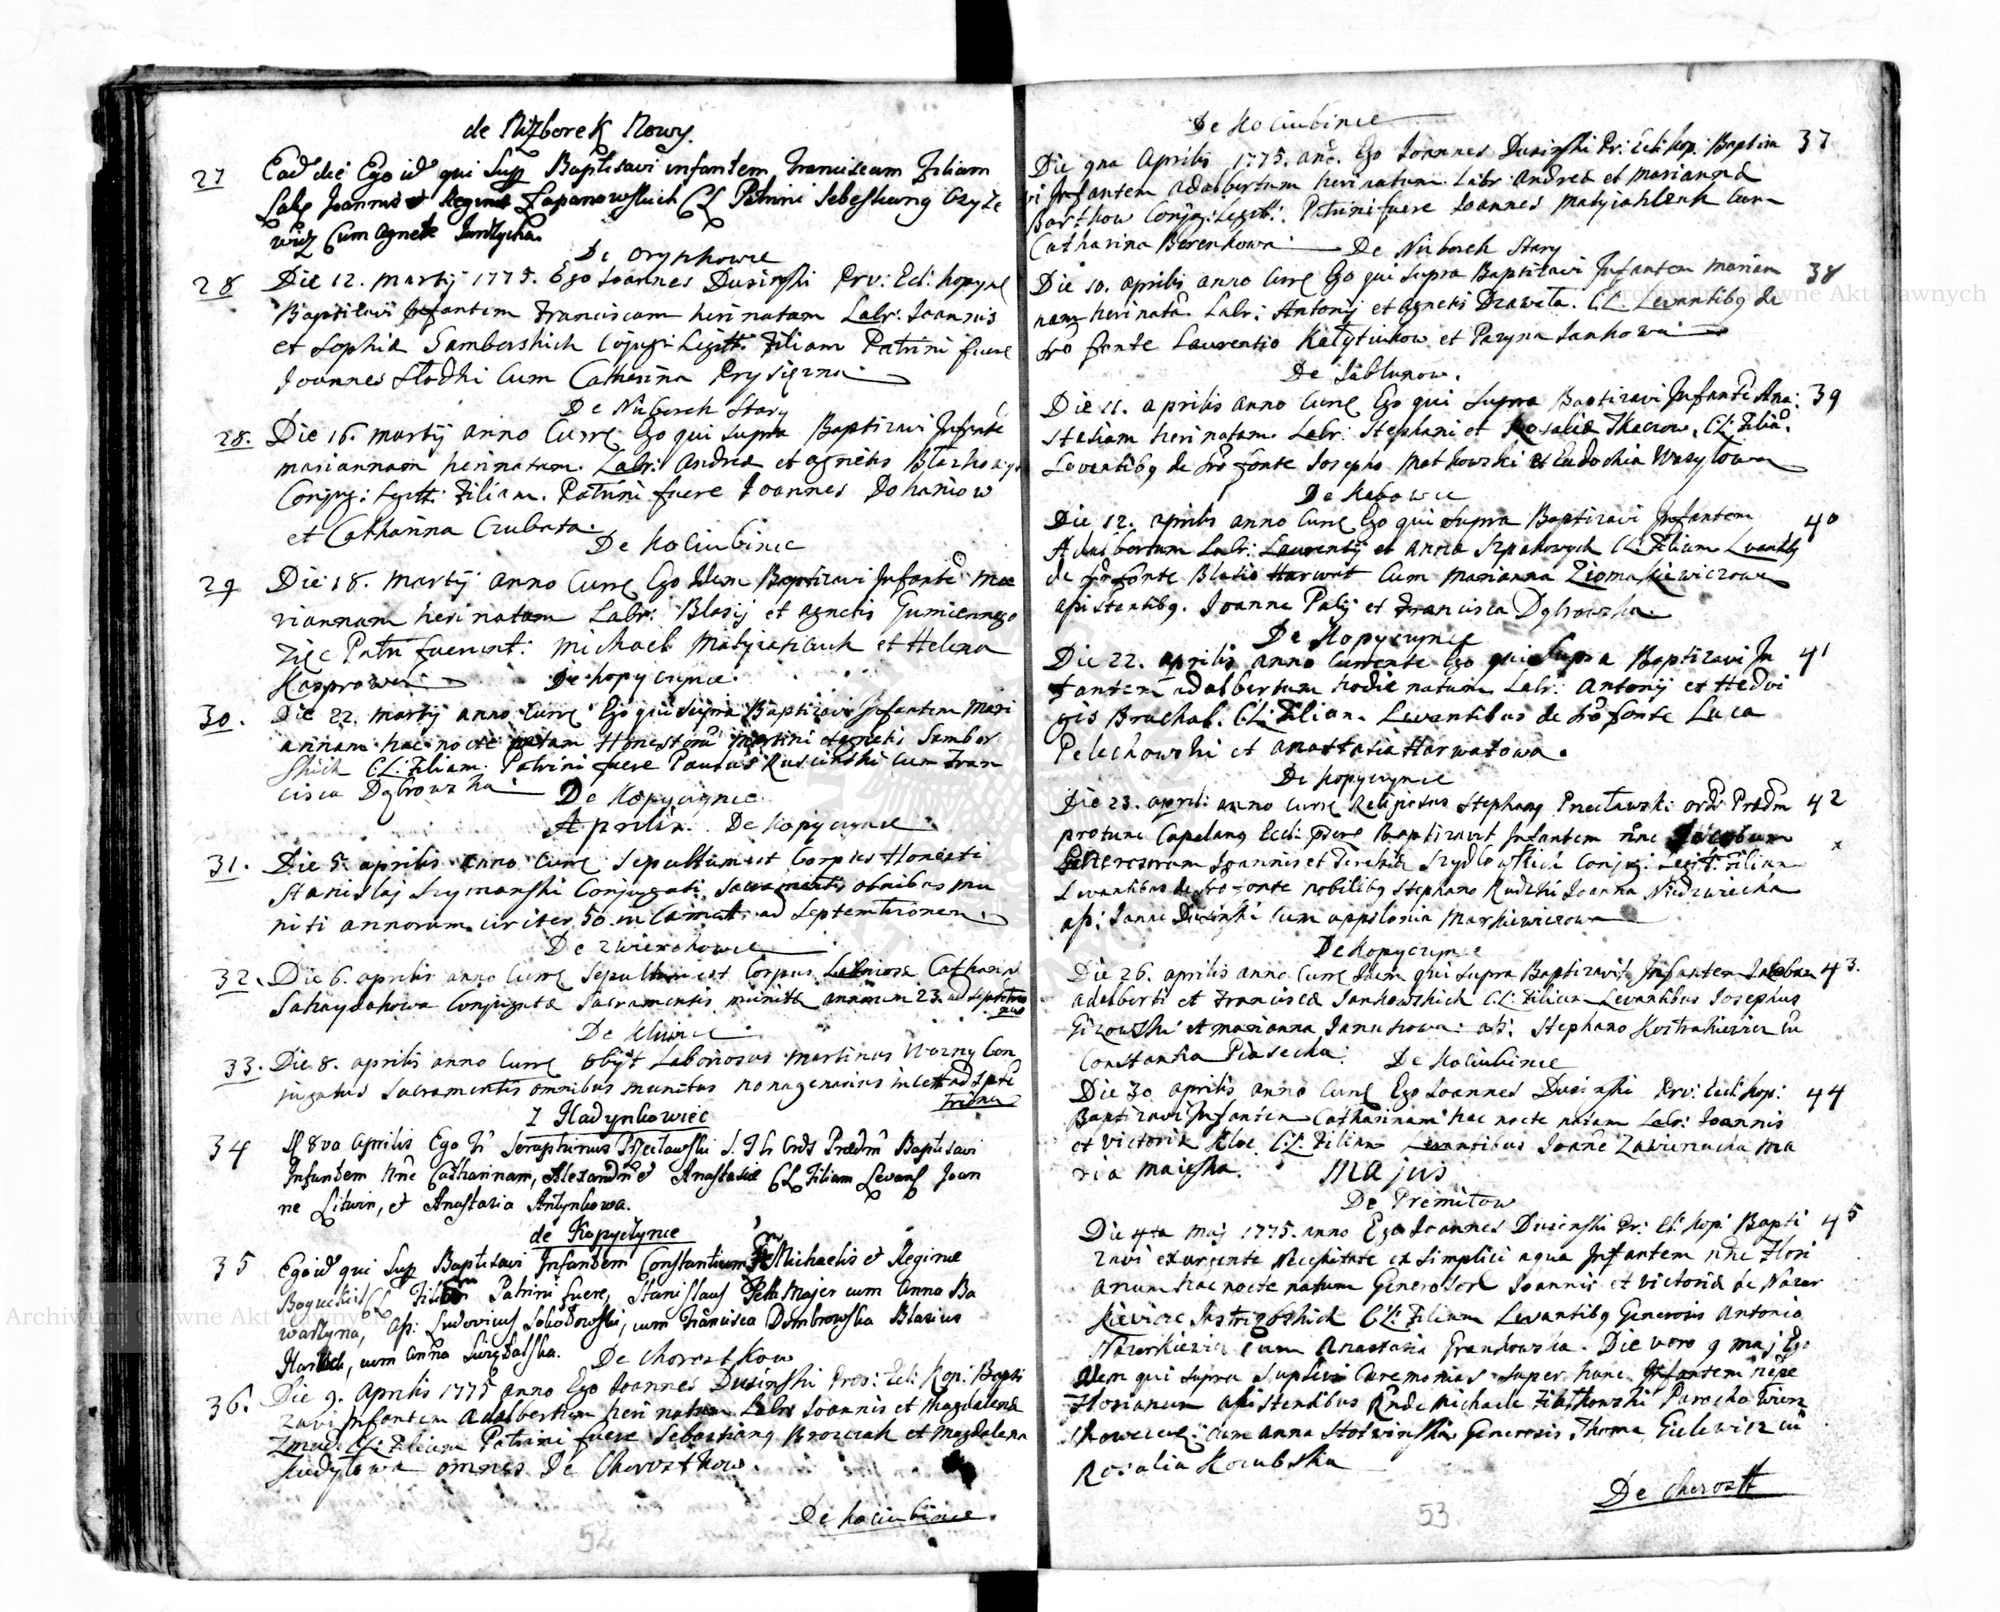 de Nizborek Nowy.
27 Ead die Ego id qui Sup Baptisavi infantem Franciscam Filiam
Lab Joannis et Regina Lapanowskich CL Patrini Sebestiang Czyże
wicz Cum Agnete
De Oryszkowce
28 Die 12. Martij 1775. Ego Joannes Dusinski Prv: Ecl: Kopycz
Baptizavi Infantem Franciscam heri natam Labr: Joannis
et Sophia Samborskich Conjug: Legitt: Filiam Patrini fuere
Joannes Slodki Cum Catharina Prysiężna
De Niżborek Stary
28. Die 16. Martij anno Curr Ego qui Supra Baptizavi Infante
Mariannam heri natam. Labr: Andrea et Agnetis
Conjug: Legitt: Filiam. Patrini fuere Joannes Dohaniow
et Catharina Czubata.
De Kociubince
29 Die 18. Martij anno Curr Ego Idem Baptizavi Infante Ma
riannam heri natam Labr: Blasij et Agnetis Gumiennego
Zięc Patri fuerunt: Michael et Helena
Kasprowa
De Kopycynce.
30. Die 22. Martij anno Curr Ego qui Supra Baptizavi Infantem Mari
annam hac nocte natam Honestoru Martini et Agnetis Sambor
skich CL: Filiam. Patrini fuere Paulus Ruscinski Cum Fran
cisca Dąbrowska
De Kopycynce
Aprilis. De Kopycynce
31. Die 5. aprilis anno Curr Sepultum est Corpus Honesti
Stanislaj Szymanski Conjugati Sacramentis omnibus mu
niti annorum circiter 50. in Cæmet: ad Septemtrionem.
De Zwierzkowce
32. Die 6. aprilis anno Curr Sepultum est Corpus Laboriosæ Catharin
Conjugatæ Sacramentis munitæ annorum 23. ad Septemtrio
nem
De Kluince
33. Die 8. aprilis anno Curr Obijt Laboriosus Martinus Wozny Con
jugatus Sacramentis omnibus munitus nonagenarius in Cæm ad Septē
trione
Z Hadynkowiec
34 D 8va Aprilis Ego Fr Seraphinus S. Th Ord Prædm Baptisavi
Infantem Nne Catharinam, Alexandri et Anastasiæ CL Filiam Levans Joan
ne Litwin, et Anastasia Antynkowa.
de Kopyczynce
35 Ego id qui Sup Baptisavi Infantem Constantinum Michaelis et Reginæ
CL Patrini fuere, Stanislaus Majer cum Anna Ba
warzyna, ass: Ludovicus Sokołowski, cum Francisca Dombrowska Blasius
cum Anna
De Chorostkow
36. Die 9. Aprilis 1775 anno Ego Joannes Dusinski Prov: Ecl: Kop: Bapti
zavi Infantem Adalbertum heri natum Labr Joannis et Magdalena
CL: Filium Patrini fuere Sebastiang Brozciak et Magdalena
Kudyłowa omnes De Chorostkow.
De Kociubince.
De Kociubince
Die 9na Aprilis 1775. anc. Ego Joannes Dusinski Pr: Ecli Kop: Baptiza 37
vi Infantem Adalbertum heri natum. Labr: Andrea et Marianna
Bartkow Conjug: Legitt: Patrini fuere Joannes Cum
Catharina Berenkowa
De Niżborek Stary
Die 10. aprilis anno Curr Ego qui Supra Baptizavi Infantem Marian 38
nam heri natā. Labr: Antonij et Agnetis CL: Levantibq de
sro fonte Laurentio et Paryna Jankowa
De Jabłunow.
Die 11. aprilis anno Curr Ego qui Supra Baptizavi Infantē Ana: 39
stasiam heri natam. Labr: Stephani et Rosaliæ Tkaczow. CL: Filiā.
Levantibq de sro fonte Josepho Matkowski et Eudochia Wasylowa
De Kebowce
Die 12. aprilis anno Curr Ego qui Supra Baptizavi Infantem 40
Adalbertum Labr: Laurentij et Anna Szpakowych CL: Filium Levantibq
de sro fonte Blasio Harwat Cum Marianna Ziomakiewiczowa
assistentibq. Joanne Palij et Francisca Dąbrowska.
De Kopycynce
Die 22. aprilis anno Currente Ego qui Supra Baptizavi In 41
fantem Adalbertum hodie natum Labr: Antonij et Hedvi
gis Bruchal. CL: Filium. Levantibus de sro fonte Luca
Pelechowski et Anastasia Harwatowa.
De Kopycynce
Die 23. april: anno Curr Religiosus Stephang Przecławski ord: Prædm 42
protunc Capelang Ecli: psive Baptizavit Infantem nne Jacobum
Joannis et Teresiæ Szydłowskich Conjug: Legitt: Filium
Levantibus de sro fonte nobilibq Stephano Rudzki Joanna Niedzwiecka
ass: Joanne Dusinski cum Appolonia Markiewiczowa
De Kopycynce
Die 26. aprilis anno Curr Idem qui Supra Baptizavit Infantem Jacobum 43.
Adalberti et Francisca Jankowskich CL: Filium Levantibus Josephus
Gizowski et Marianna Janukowa: ass: Stephano Kostrakiewicz cū
Constantia Piasecka.
De Kociubince
Die 30 aprilis anno Curr Ego Joannes Dusinski Prv: Ecli Kop: 44
Baptizavi Infantem Catharinam hac nocte natam Labr: Joannis
et Victoriæ CL: Filiam Levantibus Joanne Zawirucha Ma
ria Majeska.
Majus
De Premitow
Die 4ta Maj 1775. anno Ego Joannes Dusinski Pr: Ecl: Kop: Bapti 45
zavi exurgente Necessitate ex Simplici aqua Infantem nne Flori
anum hac nocte natum Generosor Joannis et Victoriæ de Nazar
kiewicze Jastrzębskich CL: Filium Levantibq Generosis Antonio
Nazarkiewicz Cum Anastasia Grankowska. Die vero 9 Maj Ego
Idem qui Supra Suplevi Cæremonias super hunc Infantem nēpe
Florianum assistentibus Rnde Michaele Parocho Wierz
chowecens: cum Anna Stotwinska Generosis Thoma Gielewicz cū
Rosalia Kocubska
De Chorostk
52
53
Archiwum Główne Akt Dawnych
Archiwum Główne Akt Dawnych